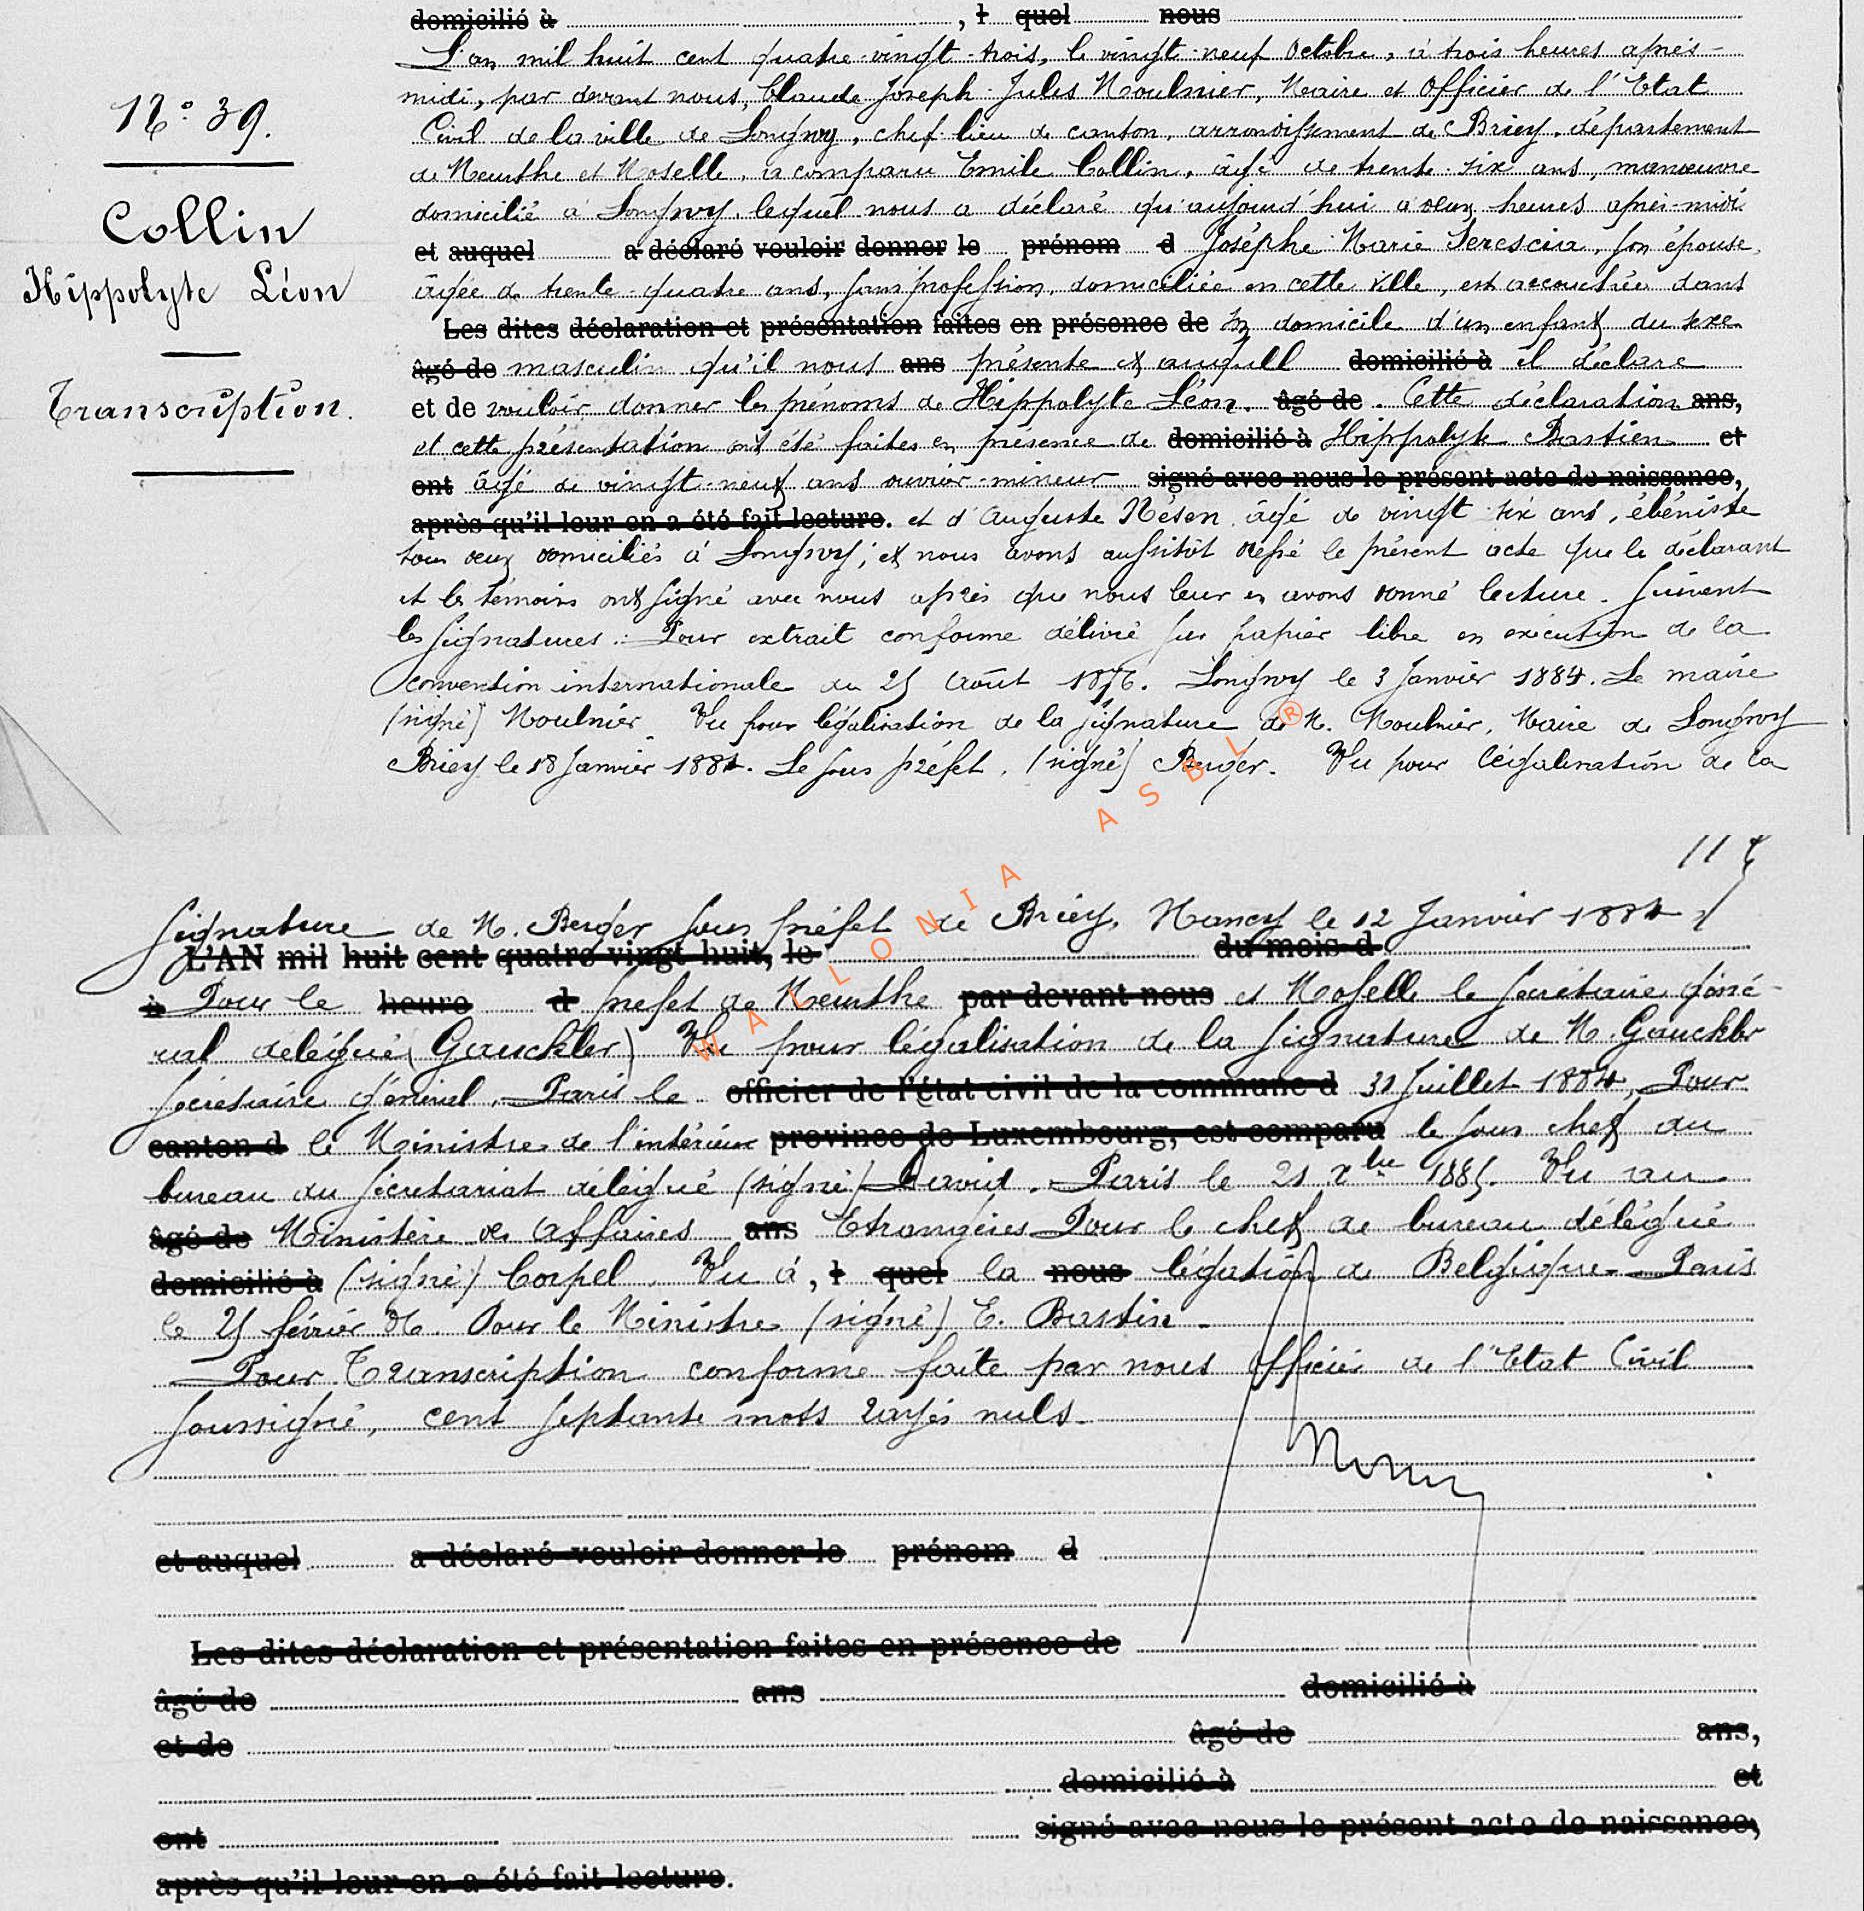 domicilié à , l quel nous
L'an mil huit cent quatre-vingt-trois, le vingt-neuf Octobre, à trois heures après-
N° 39.
midi, par devant nous, Claude Joseph Jules Moulnier, Maire et Officier de l'Etat
Civil de la ville de Longwy, chef-lieu de canton, arrondissement de Briey, département
de Meurthe et Moselle, a comparu Emile Collin, âgé de trente-six ans, manœuvre
Collin
domicilié à Longwy, lequel nous a déclaré qu'aujourd'hui à deux heures après-midi
et auquel a déclaré vouloir donner le prénom d Joséphe Marie, son épouse,
Hippolyte Léon
âgée de trente-quatre ans, sans profession, domiciliée en cette ville, est accouchée dans
Les dites déclaration et présentation faites en présence de son domicile d'un enfant du sexe
âgé de masculin qu'il nous ans présente et auquel domicilié à il déclare
Transcription.
et de vouloir donner les prénoms de Hippolyte Léon. âgé de . Cette déclaration ans,
et cette présentation ont été faites en présence de domicilié à Hippolyte Bastien et
ont âgé de vingt-neuf ans ouvrier-mineur signé avec nous le présent acte de naissance,
après qu'il leur en a été fait lecture. et d'Auguste Nésen âgé de vingt-six ans, ébéniste
tous deux domiciliés à Longwy; et nous avons aussitôt dressé le présent acte que le déclarant
et les témoins ont signé avec nous après que nous leur en avons donné lecture. Suivent
les signatures. Pour extrait conforme délivré sur papier libre en exécution de la
convention internationale du 25 Août 1876. Longwy le 3 Janvier 1884. Le maire
(signé) Moulnier. Vu pour légalisation de la signature de M. Moulnier, Maire de Longwy
Briey le 18 Janvier 1884. Le sous préfet, (signé) Berger. Vu pour légalisation de la
WALLONIA ASBL ®
signature de M. Berger sous préfet de Briey, Nancy le 12 Janvier 1884
L'AN mil huit cent quatre vingt huit, le du mois d
à Pour le heure d préfet de Meurthe par devant nous et Moselle le Secrétaire géné-
ral délégué (Gauckler) Vu pour légalisation de la signature de M. Gauckler
Secrétaire général, Paris le officier de l'état civil de la commune d 31 Juillet 1884, Pour
canton d le Ministre de l'intérieur province de Luxembourg, est comparu le sous chef du
bureau du Secrétariat délégué (signé) David. Paris le 21 xbre 1885. Vu au
âgé de Ministère des Affaires ans Etrangères Pour le chef de bureau délégué
domicilié à (signé) Corpel. Vu à, l quel la nous légation de Belgique. Paris
le 25 février 86. Pour le Ministre (signé) E. Bastin.
Pour Transcription conforme faite par nous Officier de l'Etat Civil
soussigné, cent septante mots rayés nuls.
et auquel a déclaré vouloir donner le prénom d
Les dites déclaration et présentation faites en présence de
âgé de ans domicilié à
et de âgé de ans,
domicilié à et
ont signé avec nous le présent acte de naissance,
après qu'il leur en a été fait lecture.